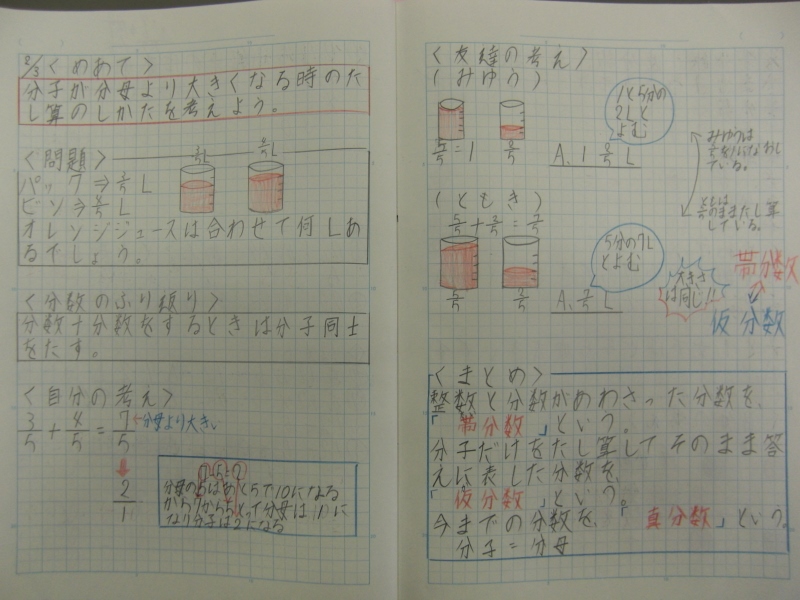 2/3 <めあて>
分子が分母より大きくなる時のた
し算のしかたを考えよう。
<問題>
パック⇒3/5 L
ビン⇒4/5 L
オレンジジュースは合わせて何Lあ
るでしょう。
<分数のふり練り>
分数+分数をするときは分子同士
をたす。
<自分の考え>
3/5 + 4/5 = 7/5 ←分母より大きい
2/1
7-5=2
なり分子は2になる
<友達の考え>
(みゆう)
5/5 = 1
2/5
1と5分の
2Lと
よむ
A. 1 2/5 L
みゆうは
5/5を1になおし
ている。
(ともき)
5/5
2/5
5分の7L
とよむ
A. 7/5 L
そのままたし算
している。
大きさ
は同じ!!
帯分数
仮分数
<まとめ>
整数と分数があわさった分数を、
「帯分数」という。
分子だけをたし算してそのまま答
えに表した分数を、
「仮分数」という。
今までの分数を、「真分数」という
分子=分母